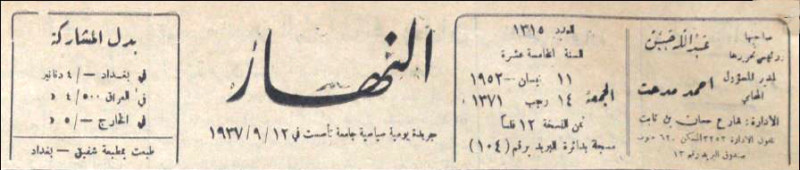 صاحبها
ورئيس تحريرها
عبدالله حسين
المدير المسؤول
المحامي
احمد مدحت
الادارة: شارع حسان بن ثابت
تلفون الادارة ٣٢٥٣
صندوق البريد رقم ١٣
العدد ١٣١٥
السنة الخامسة عشرة
الجمعة
١١ نيسان - ١٩٥٢
١٤ رجب ١٣٧١
ثمن النسخة ١٢ فلساً
مسجلة بدائرة البريد برقم (١٠٤)
النهار
جريدة يومية سياسية جامعة تأسست في ١٩٣٧/٩/١٢
بدل المشاركة
في بغداد -/٤ دنانير
في العراق ٤/٥٠٠ د
في الخارج -/٥ د
طبعت بمطبعة شفيق - بغداد